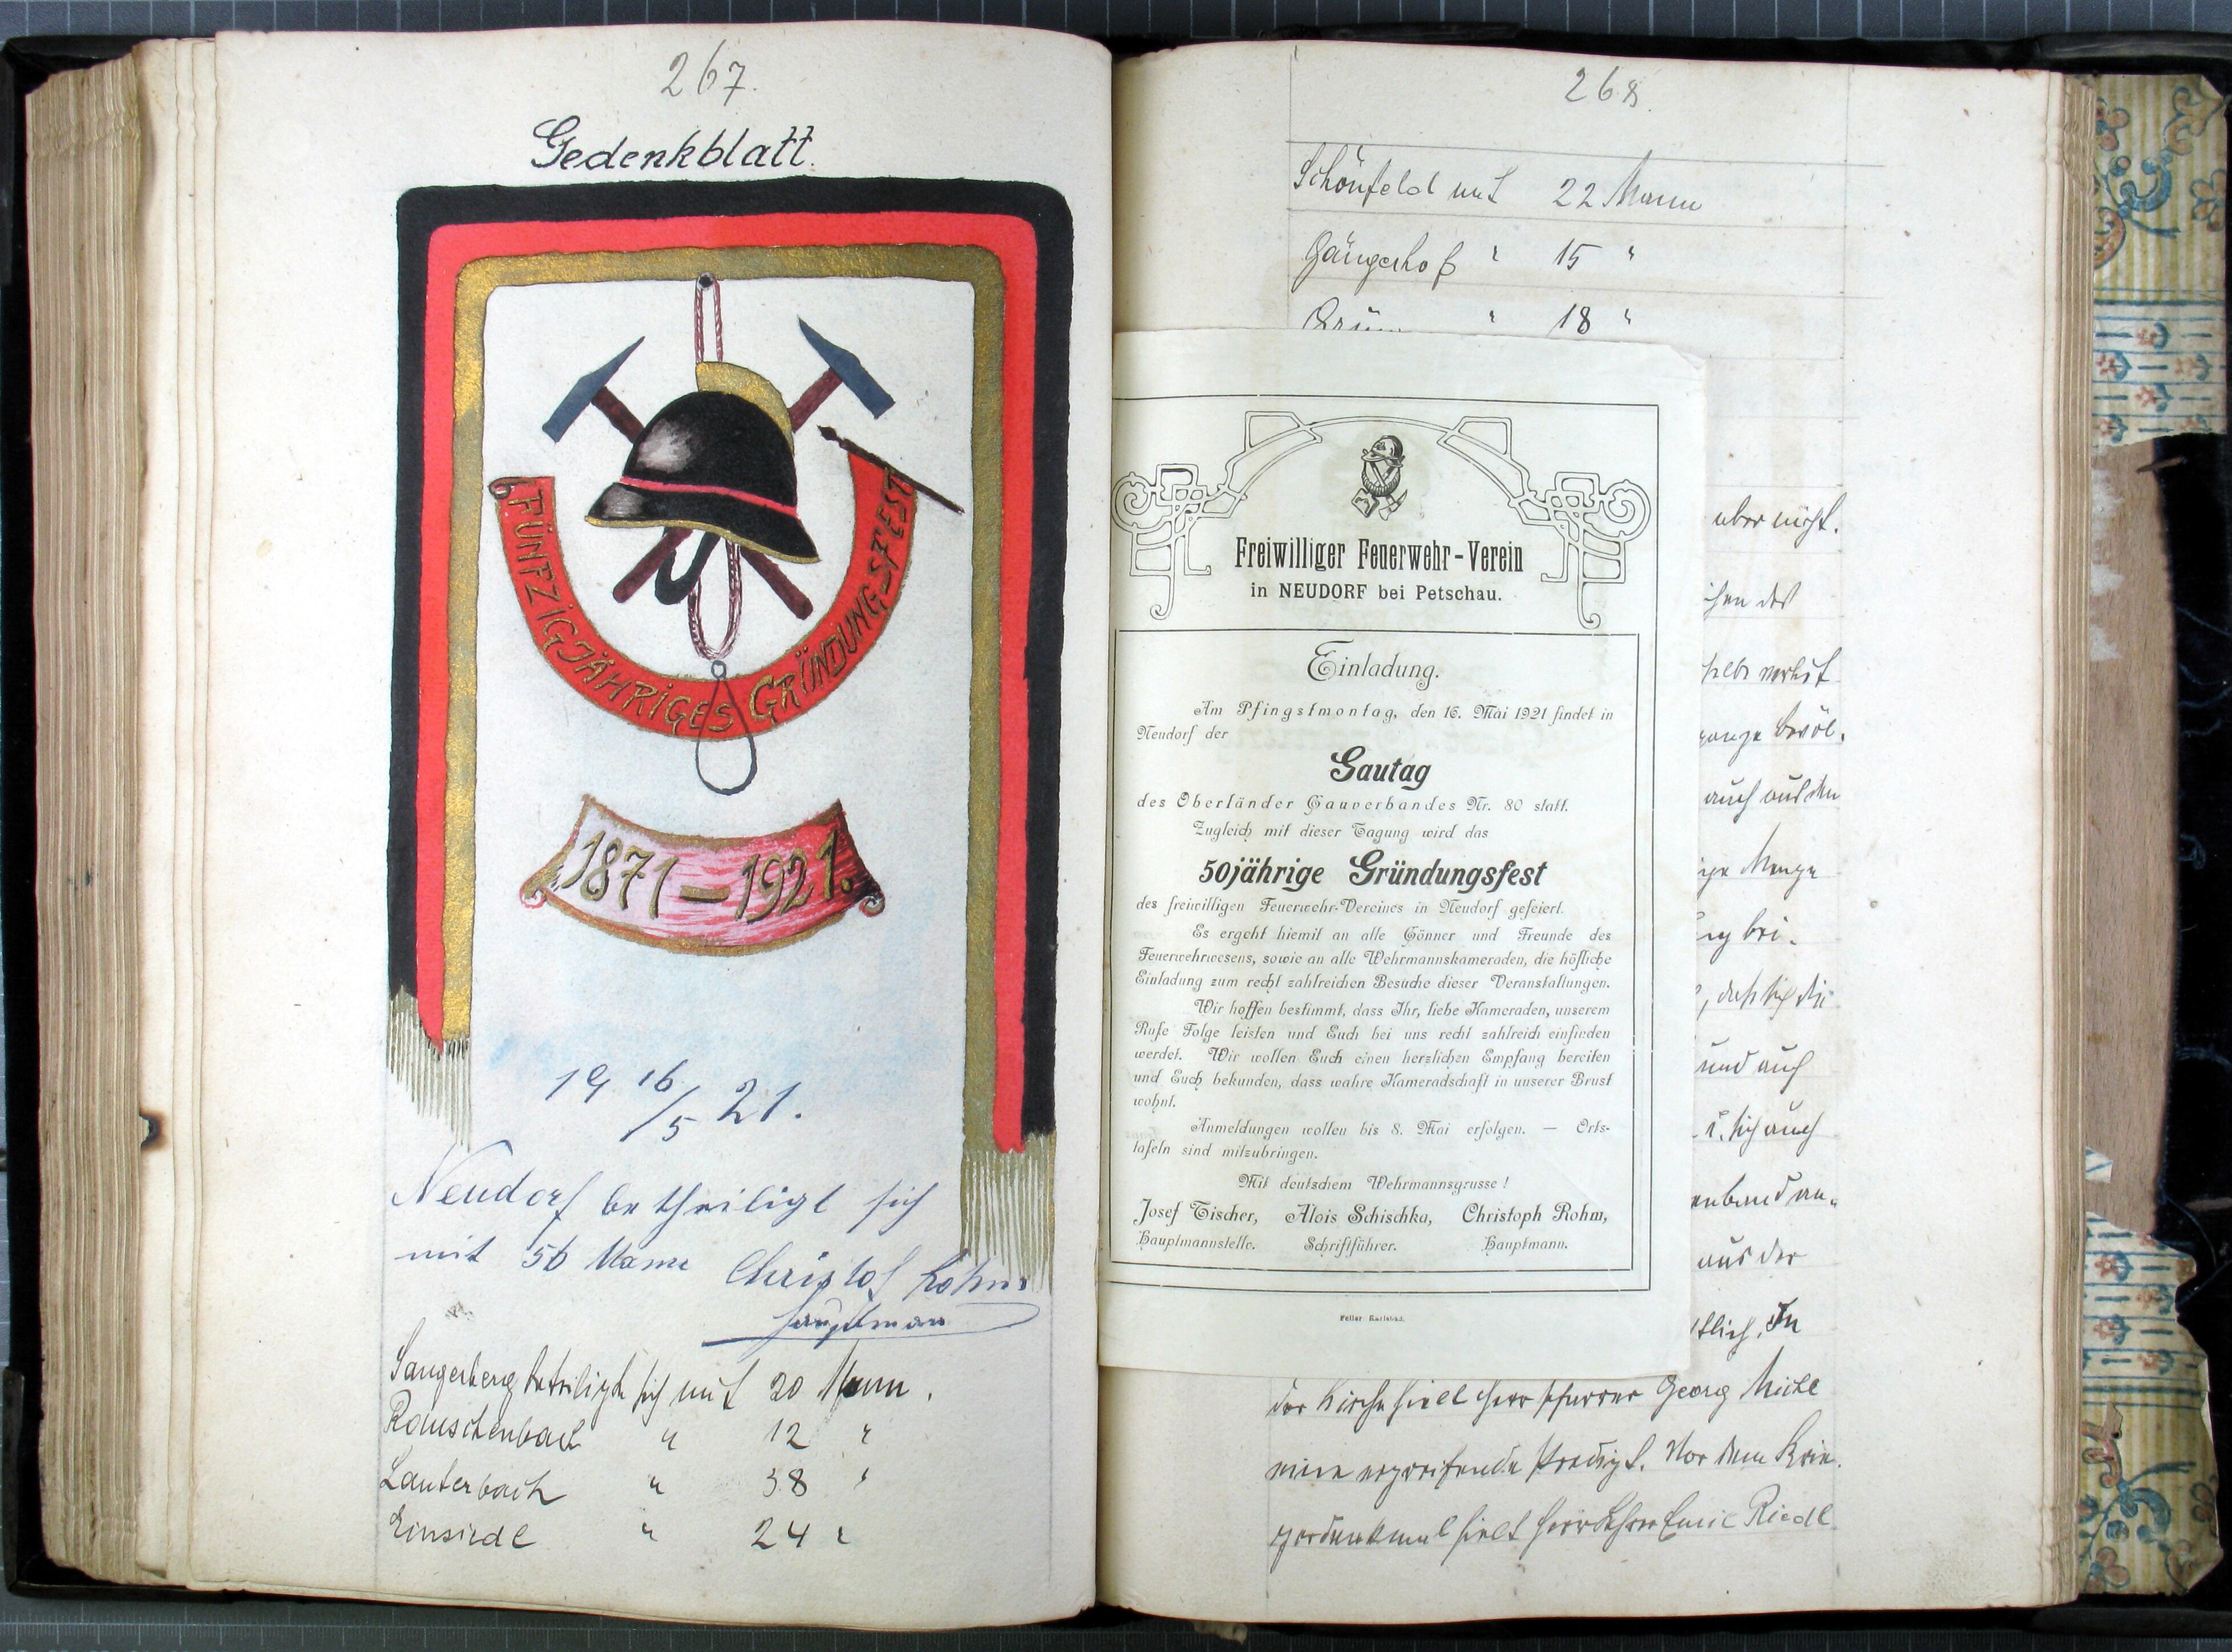 267.
Gedenkblatt.
FÜNFZIGJÄHRIGES GRÜNDUNGSFEST
1871–1921.
19 16/5 21.
Neudorf betheiligt sich
mit 56 Mann Christof Rohm
Hauptman
Sangerberg beteiligte sich mit 20 Mann.
Rauschenbach " 12 "
Lauterbach " 38 "
Einsiedl " 24 "
268.
Schönfeld mit 22 Mann
Gängerhof " 15 "
Grün " 18 "
Freiwilliger Feuerwehr-Verein
in NEUDORF bei Petschau.
Einladung.
Am Pfingstmontag, den 16. Mai 1921 findet in
Neudorf der
Gautag
des Oberländer Gauverbandes Nr. 80 statt.
Zugleich mit dieser Tagung wird das
50jährige Gründungsfest
des freiwilligen Feuerwehr-Vereines in Neudorf gefeiert.
Es ergeht hiemit an alle Gönner und Freunde des
Feuerwehrwesens, sowie an alle Wehrmannskameraden, die höfliche
Einladung zum recht zahlreichen Besuche dieser Veranstaltungen.
Wir hoffen bestimmt, dass Ihr, liebe Kameraden, unserem
Rufe Folge leisten und Euch bei uns recht zahlreich einfinden
werdet. Wir wollen Euch einen herzlichen Empfang bereiten
und Euch bekunden, dass wahre Kameradschaft in unserer Brust
wohnt.
Anmeldungen wollen bis 8. Mai erfolgen. — Orts-
tafeln sind mitzubringen.
Mit deutschem Wehrmannsgrusse!
Josef Tischer, Alois Schischka, Christoph Rohm,
Hauptmannstellv. Schriftführer. Hauptmann.
Feller Karlsbad.
aber nicht.
des
ganze Bevöl.
auch aus den
Menge
bei.
, daß sich die
und auch
sich auch
aus der
In
der Kirche hielt Herr Pfarrer Georg Michl
eine ergreifende Predigt. Vor dem Krie.
gerdenkmal hielt Herr Lehrer Emil Riedl